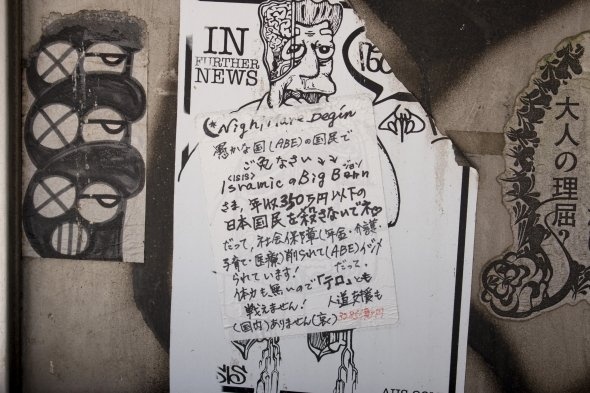 IN
FURTHER
NEWS
*Nightmare Begin
愚かな国(ABE)の国民で
ご免なさい↓↓
<ISIS>
IsramicのBig Bonn
さま、年収350万円以下の
日本国民を殺さないでネ
だって、社会保障(年金・介護・
子育て・医療)削られて(ABE)イジメ
られています! だって、
体力も無いので「テロ」とも
戦えません! 人道支援も
(国内)ありません(哀)
大人の理屈?